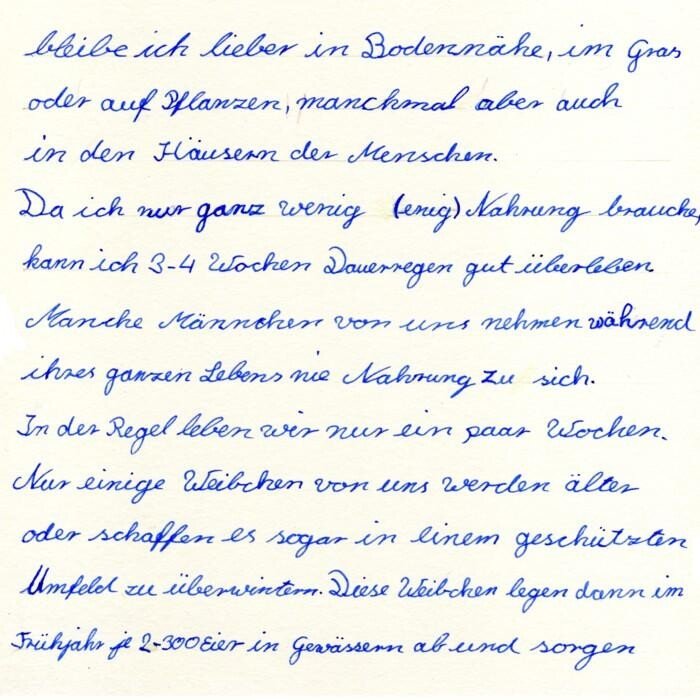 bleibe ich lieber in Bodennähe, im Gras
oder auf Pflanzen, manchmal aber auch
in den Häusern der Menschen.
Da ich nur ganz wenig (enig) Nahrung brauche,
kann ich 3-4 Wochen Dauerregen gut überleben.
Manche Männchen von uns nehmen während
ihres ganzen Lebens nie Nahrung zu sich.
In der Regel leben wir nur ein paar Wochen.
Nur einige Weibchen von uns werden älter
oder schaffen es sogar in einem geschützten
Umfeld zu überwintern. Diese Weibchen legen dann im
Frühjahr je 2-300 Eier in Gewässern ab und sorgen